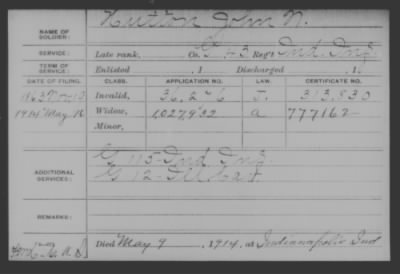 NAME OF SOLDIER: Hutton John N.
SERVICE: Late rank, Co. G 43 Reg't Ind. Inf.
TERM OF SERVICE: Enlisted , 1 Discharged , 1
DATE OF FILING. CLASS. APPLICATION NO. LAW. CERTIFICATE NO.
1863 Invalid, 36,276 J. 313,830
1914 May 18 Widow, 1,027,932 a 777162
Minor,
ADDITIONAL SERVICES: G 115 Ind. Inf.
G 12 Ill. Cav.
REMARKS:
Died May 9, 1914, at Indianapolis Ind